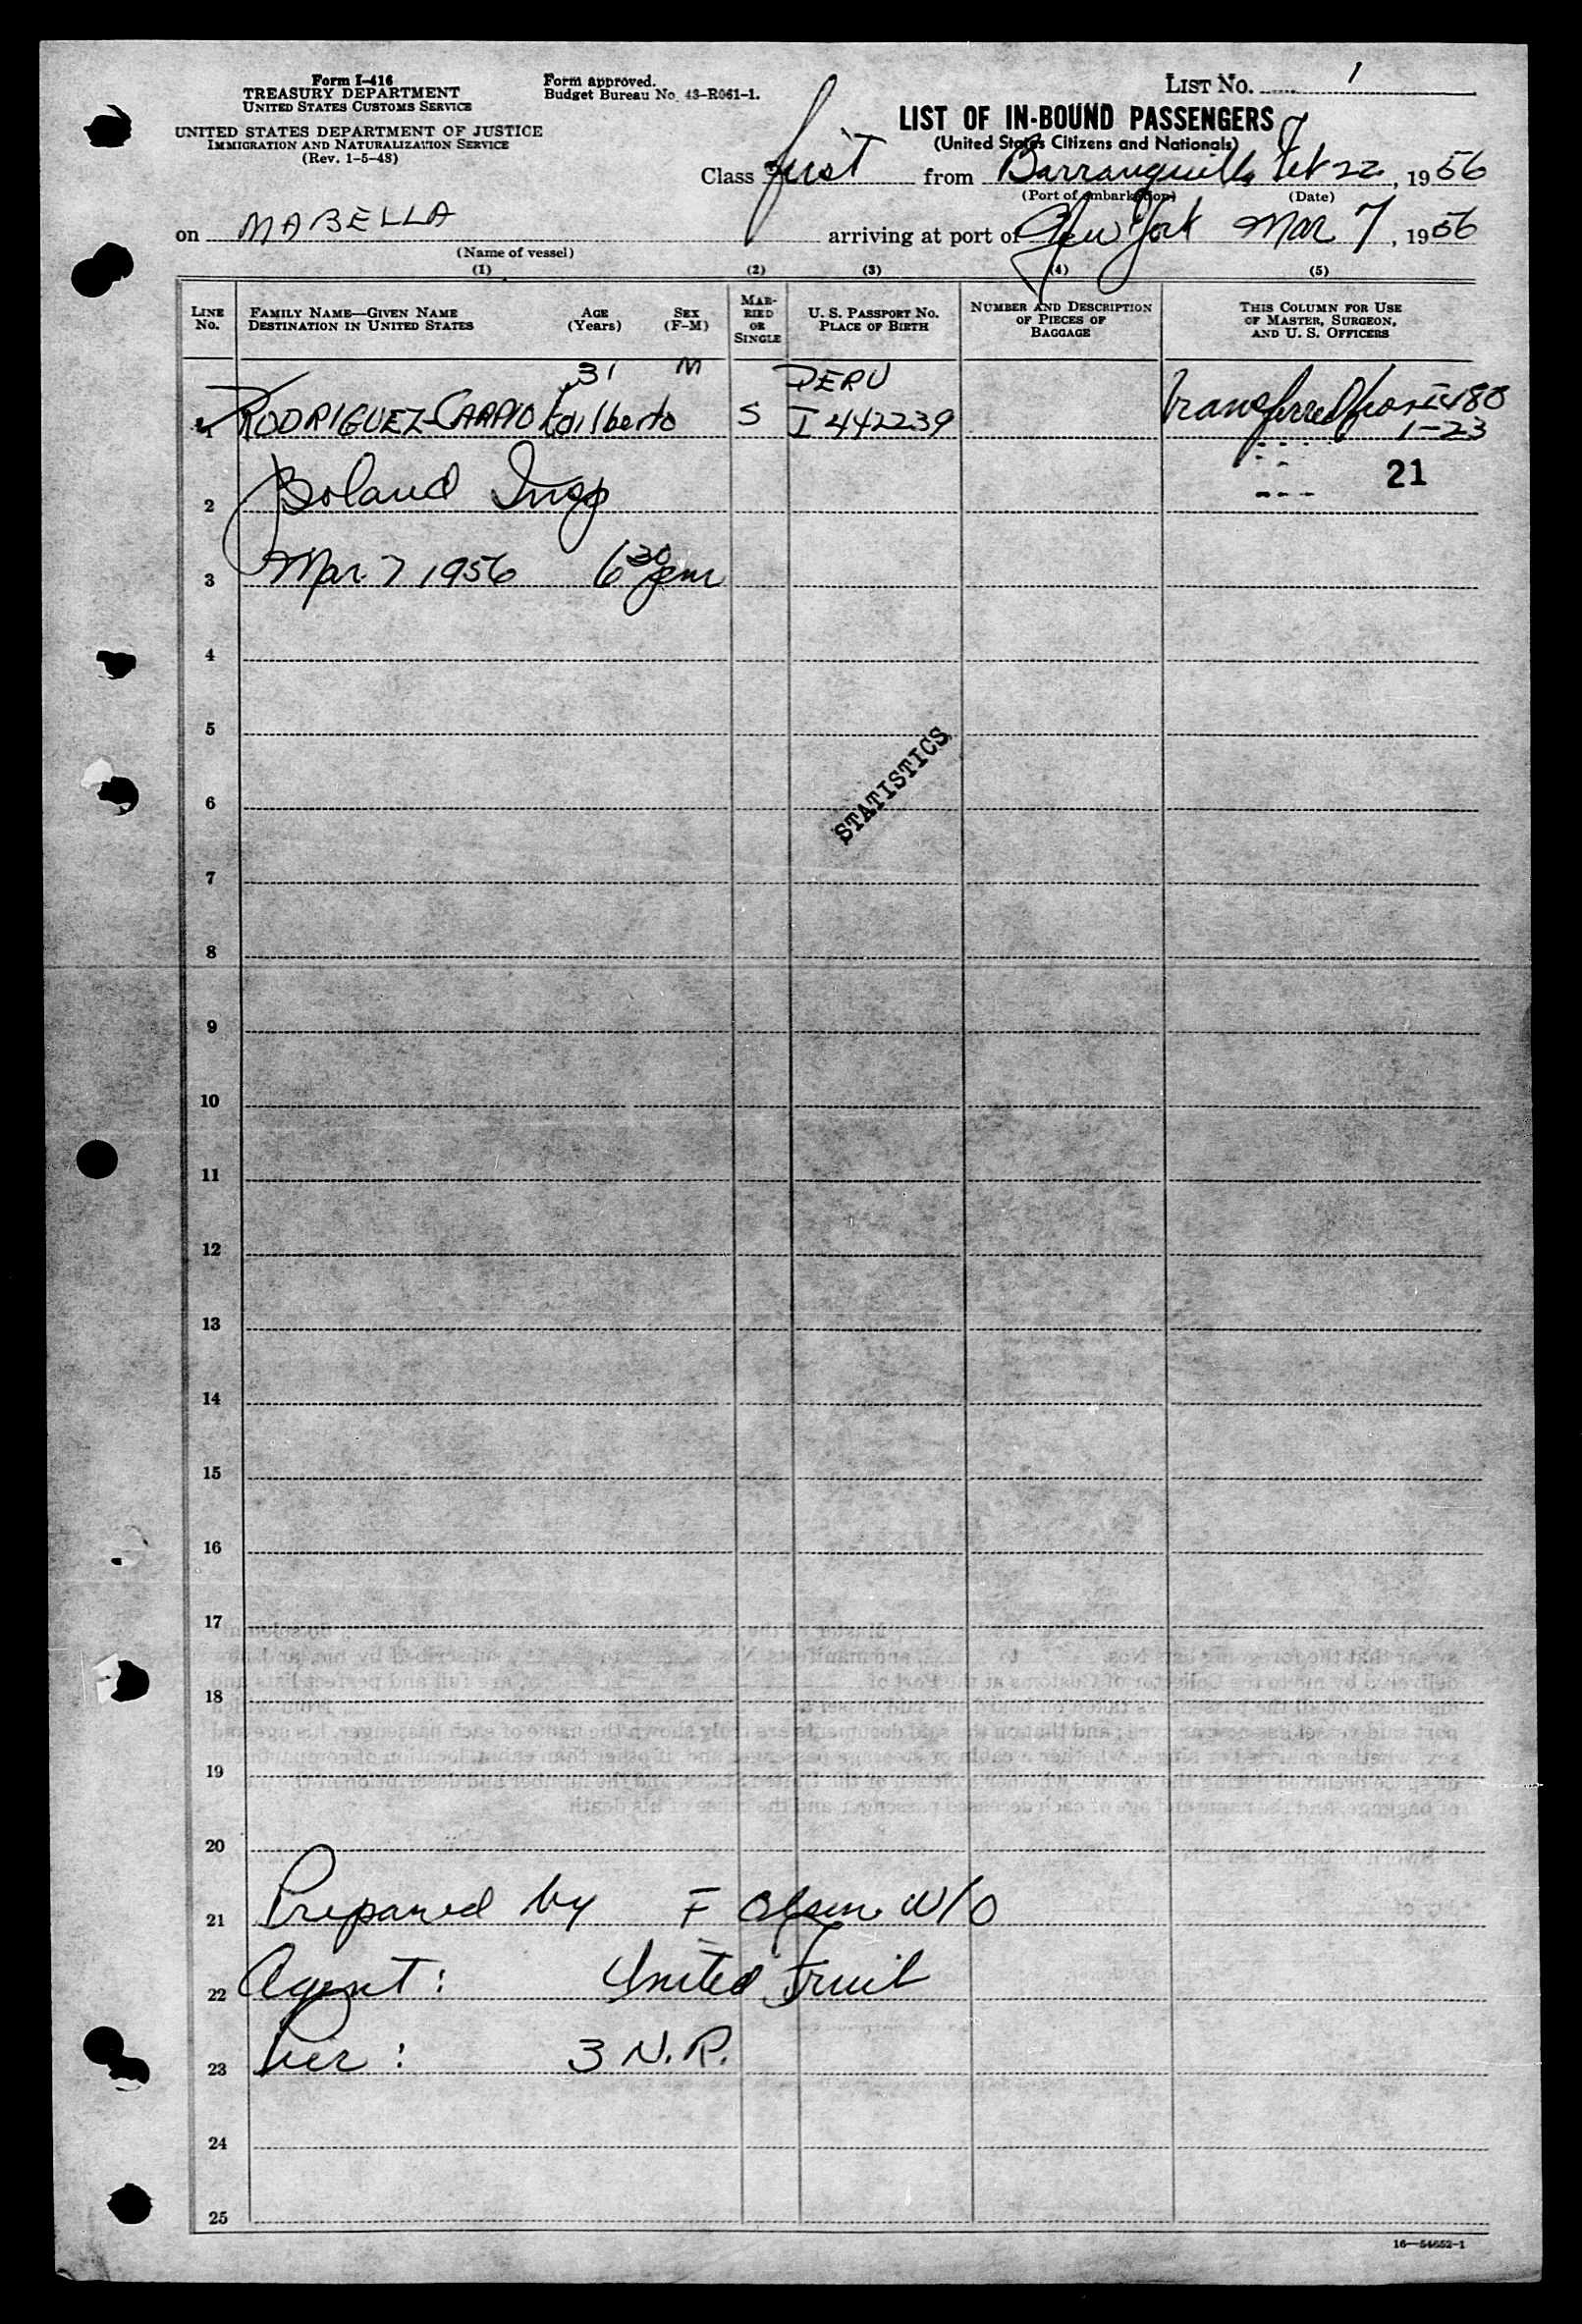 Form I-416
TREASURY DEPARTMENT
UNITED STATES CUSTOMS SERVICE
UNITED STATES DEPARTMENT OF JUSTICE
IMMIGRATION AND NATURALIZATION SERVICE
(Rev. 1-5-48)
Form approved.
Budget Bureau No. 43-R061-1.
LIST NO. 1
LIST OF IN-BOUND PASSENGERS
(United States Citizens and Nationals)
Class first from Barranquilla Feb 22, 1956
(Port of embarkation) (Date)
on MABELLA arriving at port of New York Mar 7, 1956
(Name of vessel)
(1) (2) (3) (4) (5)
LINE NO.
FAMILY NAME—GIVEN NAME
DESTINATION IN UNITED STATES
AGE (Years)
SEX (F-M)
MARRIED OR SINGLE
U. S. PASSPORT NO.
PLACE OF BIRTH
NUMBER AND DESCRIPTION OF PIECES OF BAGGAGE
THIS COLUMN FOR USE OF MASTER, SURGEON, AND U. S. OFFICERS
31 M PERU
1 RODRIGUEZ-CARPIO Edilberto S I 442239 Transferred from I-480
1-23
21
2 Boland Insp
3 Mar 7 1956 6 30 pm
4
5
STATISTICS
6
7
8
9
10
11
12
13
14
15
16
17
18
19
20
21 Prepared by F Olsen W/O
22 Agent: United Fruit
23 Pier: 3 N.R.
24
25
16—54652-1